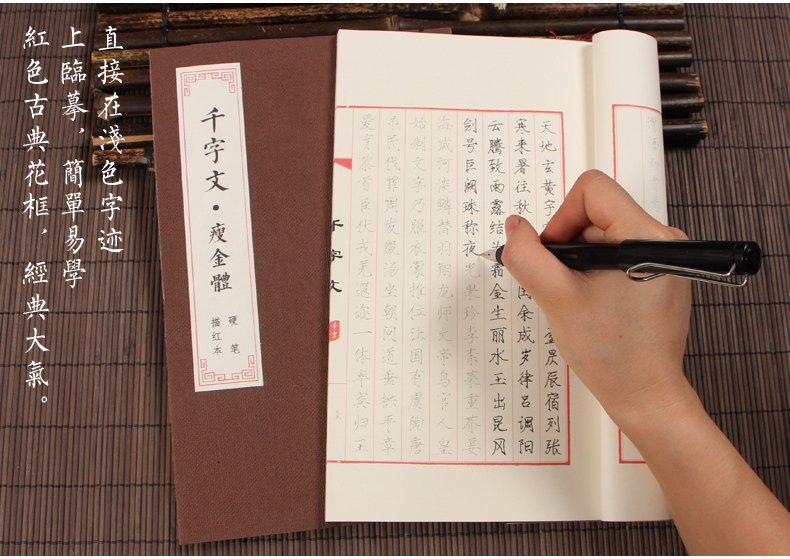 直接在淺色字迹
上臨摹，簡單易學
紅色古典花框，經典大氣。
千字文·瘦金體
硬笔
描红本
天地玄黄宇 盈昃辰宿列张
寒来暑往秋 闰余成岁律吕调阳
云腾致雨露结为霜金生丽水玉出昆冈
剑号巨阙珠称夜 果珍李柰菜重芥姜
海咸河淡鳞潜羽翔龙师火帝鸟官人皇
始制文字乃服衣裳推位让国有虞陶唐
吊民伐罪周发殷汤坐朝问道垂拱平章
爱育黎首臣伏戎羌遐迩一体率宾归王
千字文